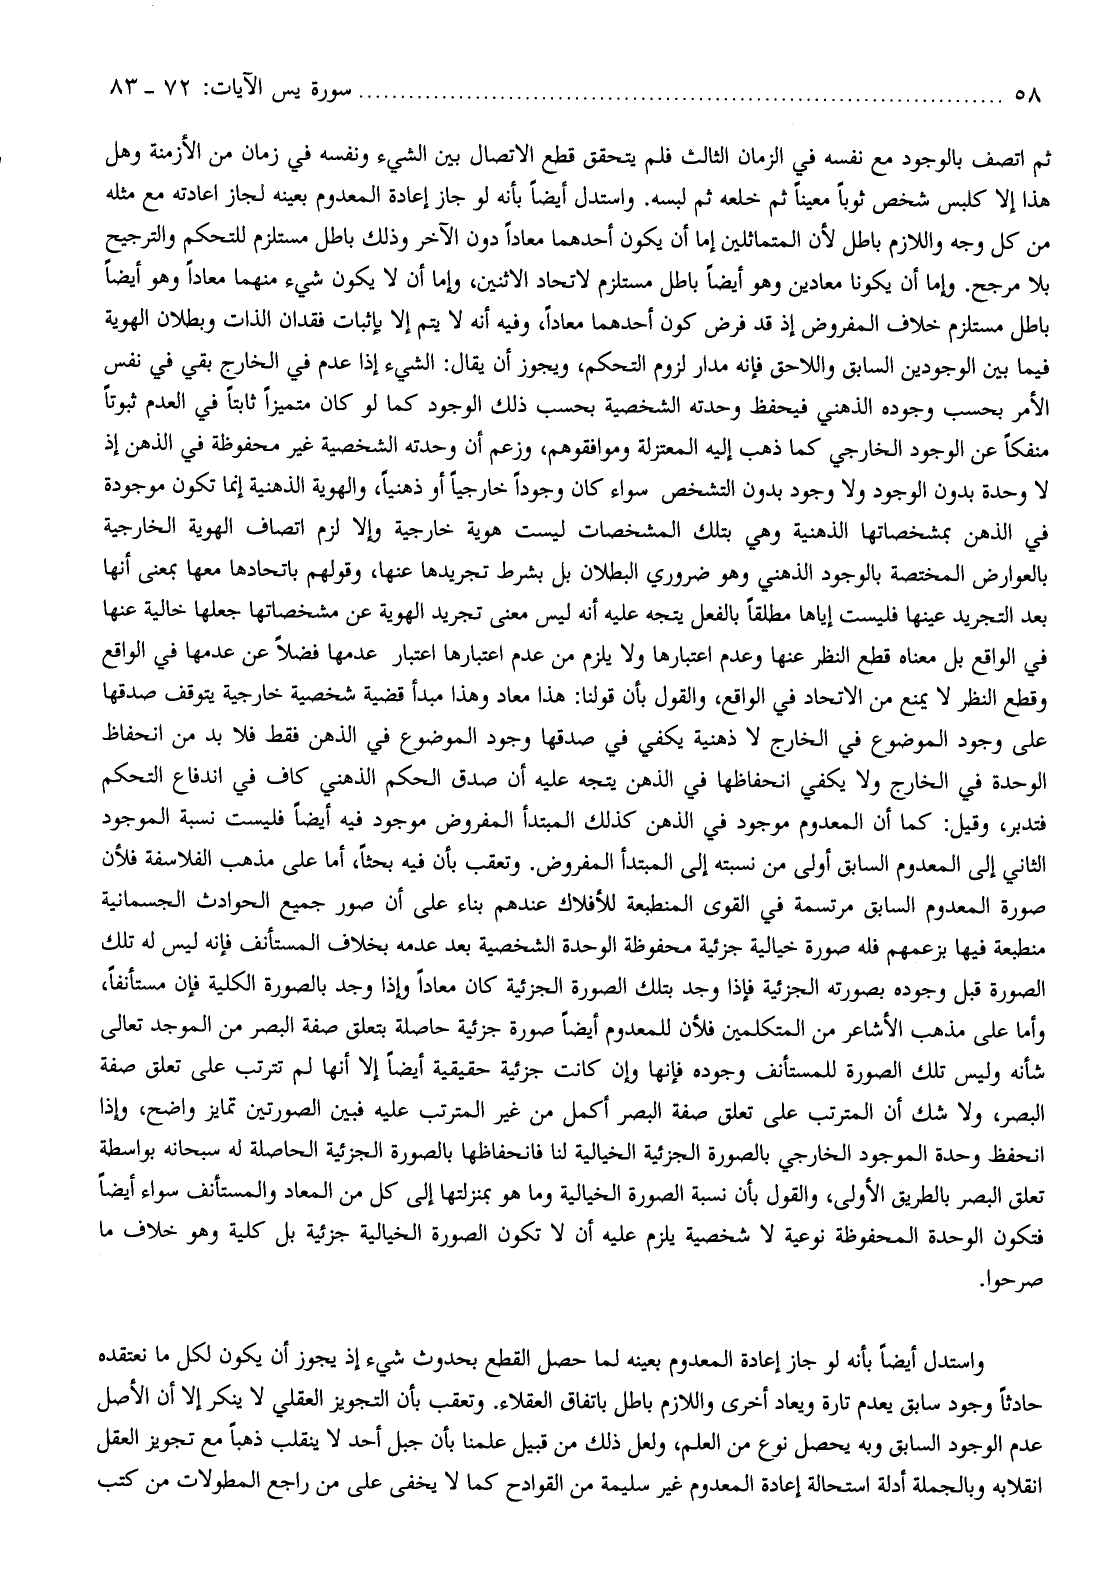 ٥٨ ........................................................................ سورة يس الآيات: ٧٢ ـ ٨٣
ثم اتصف بالوجود مع نفسه في الزمان الثالث فلم يتحقق قطع الاتصال بين الشيء ونفسه في زمان من الأزمنة وهل
هذا إلا كلبس شخص ثوباً معيناً ثم خلعه ثم لبسه. واستدل أيضاً بأنه لو جاز إعادة المعدوم بعينه لجاز اعادته مع مثله
من كل وجه واللازم باطل لأن المتماثلين إما أن يكون أحدهما معاداً دون الآخر وذلك باطل مستلزم للتحكم والترجيح
بلا مرجح. وإما أن يكونا معادين وهو أيضاً باطل مستلزم لاتحاد الاثنين، وإما أن لا يكون شيء منهما معاداً وهو أيضاً
باطل مستلزم خلاف المفروض إذ قد فرض كون أحدهما معاداً، وفيه أنه لا يتم إلا بإثبات فقدان الذات وبطلان الهوية
فيما بين الوجودين السابق واللاحق فإنه مدار لزوم التحكم، ويجوز أن يقال: الشيء إذا عدم في الخارج بقي في نفس
الأمر بحسب وجوده الذهني فيحفظ وحدته الشخصية بحسب ذلك الوجود كما لو كان متميزاً ثابتاً في العدم ثبوتاً
منفكاً عن الوجود الخارجي كما ذهب إليه المعتزلة وموافقوهم، وزعم أن وحدته الشخصية غير محفوظة في الذهن إذ
لا وحدة بدون الوجود ولا وجود بدون التشخص سواء كان وجوداً خارجياً أو ذهنياً، والهوية الذهنية إنما تكون موجودة
في الذهن بمشخصاتها الذهنية وهي بتلك المشخصات ليست هوية خارجية وإلا لزم اتصاف الهوية الخارجية
بالعوارض المختصة بالوجود الذهني وهو ضروري البطلان بل بشرط تجريدها عنها، وقولهم باتحادها معها بمعنى أنها
بعد التجريد عينها فليست إياها مطلقاً بالفعل يتجه عليه أنه ليس معنى تجريد الهوية عن مشخصاتها جعلها خالية عنها
في الواقع بل معناه قطع النظر عنها وعدم اعتبارها ولا يلزم من عدم اعتبارها اعتبار عدمها فضلاً عن عدمها في الواقع
وقطع النظر لا يمنع من الاتحاد في الواقع، والقول بأن قولنا: هذا معاد وهذا مبدأ قضية شخصية خارجية يتوقف صدقها
على وجود الموضوع في الخارج لا ذهنية يكفي في صدقها وجود الموضوع في الذهن فقط فلا بد من انحفاظ
الوحدة في الخارج ولا يكفي انحفاظها في الذهن يتجه عليه أن صدق الحكم الذهني كاف في اندفاع التحكم
فتدبر، وقيل: كما أن المعدوم موجود في الذهن كذلك المبتدأ المفروض موجود فيه أيضاً فليست نسبة الموجود
الثاني إلى المعدوم السابق أولى من نسبته إلى المبتدأ المفروض. وتعقب بأن فيه بحثاً، أما على مذهب الفلاسفة فلأن
صورة المعدوم السابق مرتسمة في القوى المنطبعة للأفلاك عندهم بناء على أن صور جميع الحوادث الجسمانية
منطبعة فيها بزعمهم فله صورة خيالية جزئية محفوظة الوحدة الشخصية بعد عدمه بخلاف المستأنف فإنه ليس له تلك
الصورة قبل وجوده بصورته الجزئية فإذا وجد بتلك الصورة الجزئية كان معاداً وإذا وجد بالصورة الكلية فإن مستأنفاً،
وأما على مذهب الأشاعر من المتكلمين فلأن للمعدوم أيضاً صورة جزئية حاصلة بتعلق صفة البصر من الموجد تعالى
شأنه وليس تلك الصورة للمستأنف وجوده فإنها وإن كانت جزئية حقيقية أيضاً إلا أنها لم تترتب على تعلق صفة
البصر، ولا شك أن المترتب على تعلق صفة البصر أكمل من غير المترتب عليه فبين الصورتين تمايز واضح، وإذا
انحفظ وحدة الموجود الخارجي بالصورة الجزئية الخيالية لنا فانحفاظها بالصورة الجزئية الحاصلة له سبحانه بواسطة
تعلق البصر بالطريق الأولى، والقول بأن نسبة الصورة الخيالية وما هو بمنزلتها إلى كل من المعاد والمستأنف سواء أيضاً
فتكون الوحدة المحفوظة نوعية لا شخصية يلزم عليه أن لا تكون الصورة الخيالية جزئية بل كلية وهو خلاف ما
صرحوا.
واستدل أيضاً بأنه لو جاز إعادة المعدوم بعينه لما حصل القطع بحدوث شيء إذ يجوز أن يكون لكل ما نعتقده
حادثاً وجود سابق يعدم تارة ويعاد أخرى واللازم باطل باتفاق العقلاء. وتعقب بأن التجويز العقلي لا ينكر إلا أن الأصل
عدم الوجود السابق وبه يحصل نوع من العلم، ولعل ذلك من قبيل علمنا بأن جبل أحد لا ينقلب ذهباً مع تجويز العقل
انقلابه وبالجملة أدلة استحالة إعادة المعدوم غير سليمة من القوادح كما لا يخفى على من راجع المطولات من كتب